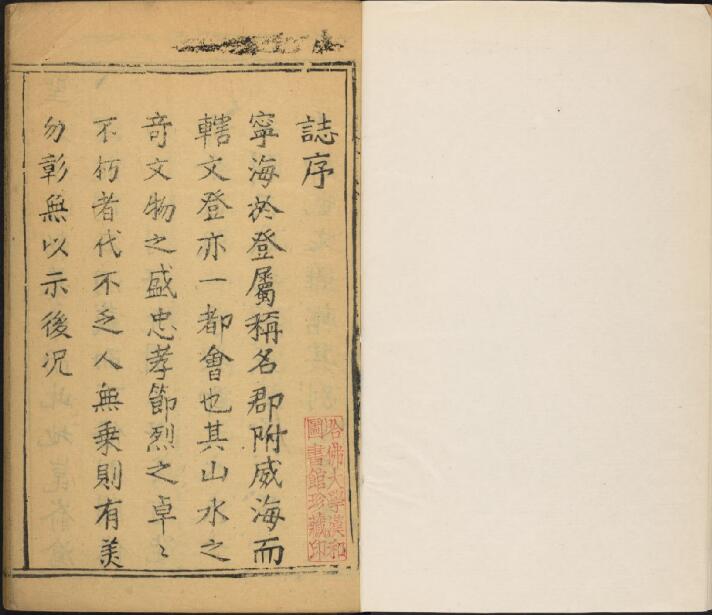 誌序
寧海於登屬稱名郡附威海而
轄文登亦一都會也其山水之
奇文物之盛忠孝節烈之卓〻
不朽者代不乏人無乗則有美
勿彰無以示後况
哈佛大學漢和
圖書館珍藏印